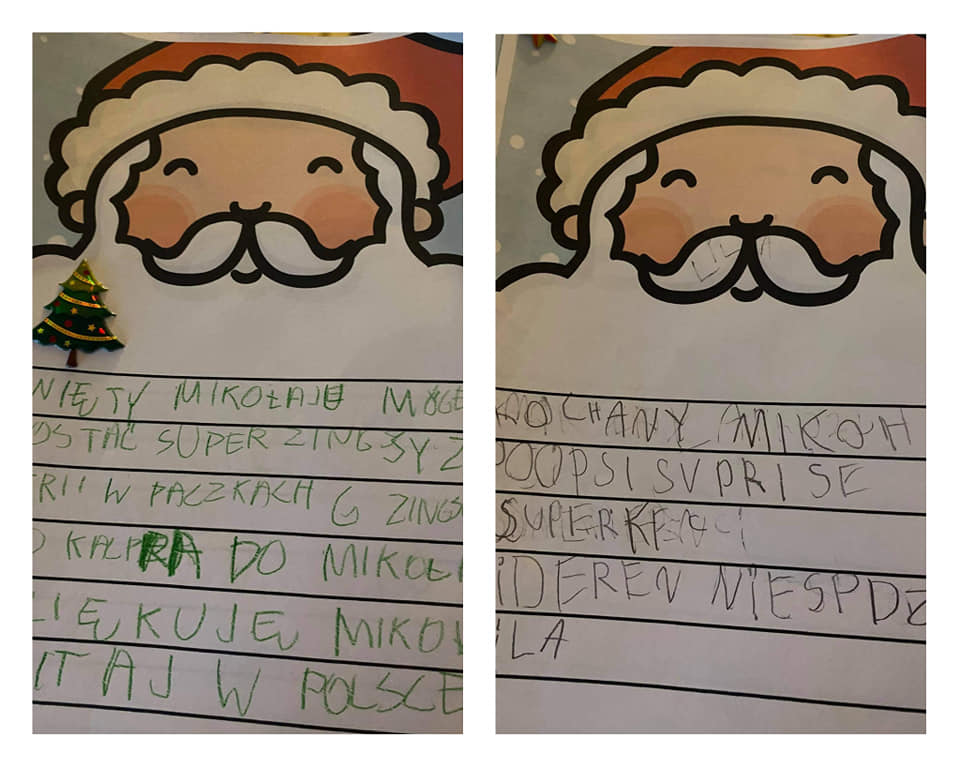 WIĘTY MIKOŁAJU MOGĘ
OSTAĆ SUPER ZINGSY Z
RII W PACZKACH G ZINGS
DO MIKOŁ
IĘKUJĘ MIKOŁ
ITAJ W POLSCE
LILA
KOCHANY MIKOŁ
POOPSI SUPRISE
SUPER
IDEREN NIESPDZ
ILA